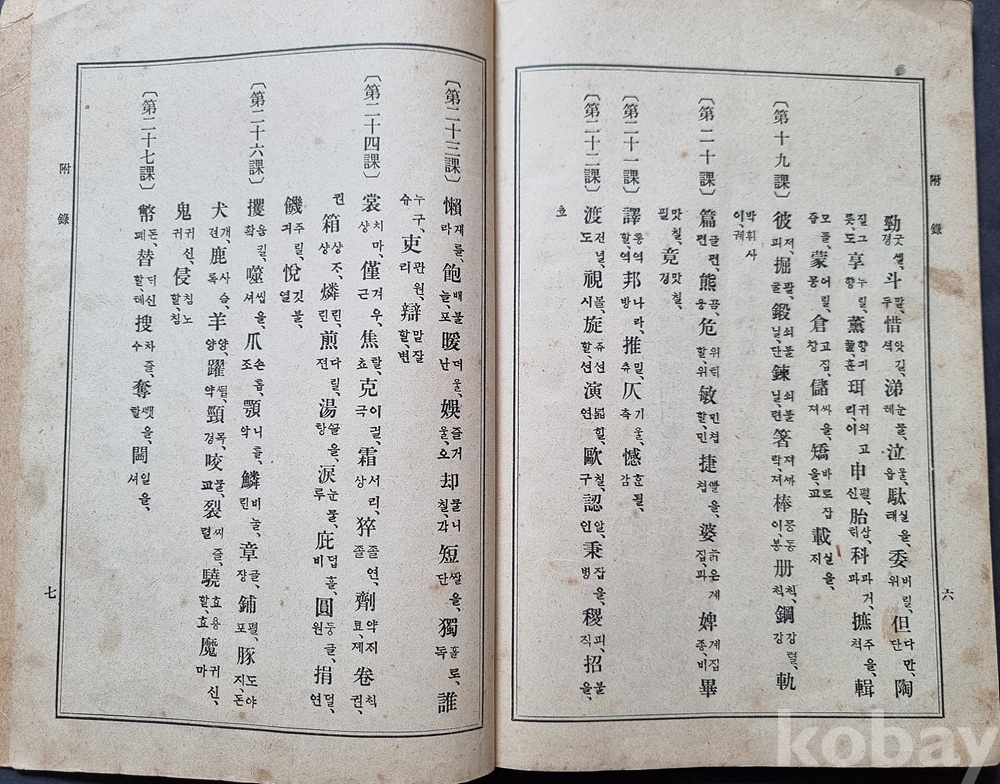 附錄 六
勁굿셀,경 斗말,두 惜앗길,셕 涕눈물,톄 泣울,읍 駄실을,태 委버릴,위 但다만,단 陶
질그릇,도 享누릴,향 薰향긔,훈 珥귀의고리이 申펼,신 胎삼, 科과거,과 摭주을,척 輯
모을,즙 蒙어릴,몽 倉고집,창 儲싸을,져 矯바로잡을,교 載실을,저
〔第十九課〕 彼저,피 掘팔,굴 鍛쇠불닐,단 鍊쇠불닐,련 箸져싸락,져 棒몽동이,봉 册칙,칙 鋼강렬,강 軌
박휘사이궤
〔第二十課〕 篇글편,편 熊곰,웅 危위틱할,위 敏민쳡할,민 捷빨을,쳡 婆늙은계집,파 婢계집종,비 畢
맛칠,필 竟맛칠,경
〔第二十一課〕 譯통역할,역 邦나라,방 推밀,츄 仄기울,측 憾한될,감
〔第二十二課〕 渡건널,도 視볼,시 旋쥬션할,션 演넓힐,연 歐칠,구 認알,인 秉잡을,병 稷피,직 招불을,
효
〔第二十三課〕 懶게를,라 飽배불늘,포 暖더울,난 娛즐거울,오 却물니칠,각 短쌀을,단 獨홀로,독 誰
누구,슈 吏관원,리 辯말잘할,변
〔第二十四課〕 裳치마,상 僅겨우,근 焦탈,쵸 克이긜,극 霜서리,상 猝졸연,졸 劑약지,제 卷칙권,
권 箱상조,상 燐린,린 煎다릴,전 湯쓸을,탕 淚눈물,루 庇덥흘,비 圓둥글,원 捐덜,연
饑주릴,긔 悅깃불,열
〔第二十六課〕 攫움길,확 噬씹을,셔 爪손톱,조 顎니틀,악 鱗비눌,린 章글,쟝 鋪펼,포 豚도야지,돈
犬개,견 鹿사슴,록 羊양,양 躍뛸,약 頸목,경 咬물,교 裂찌즐,렬 驍효용할,효 魔귀신,마
鬼귀신,귀 侵침노할,침
〔第二十七課〕 幣돈,폐 替딕신할,톄 搜차즐,수 奪쌔앗을,할 闔일을,셔
附錄 七
kobay